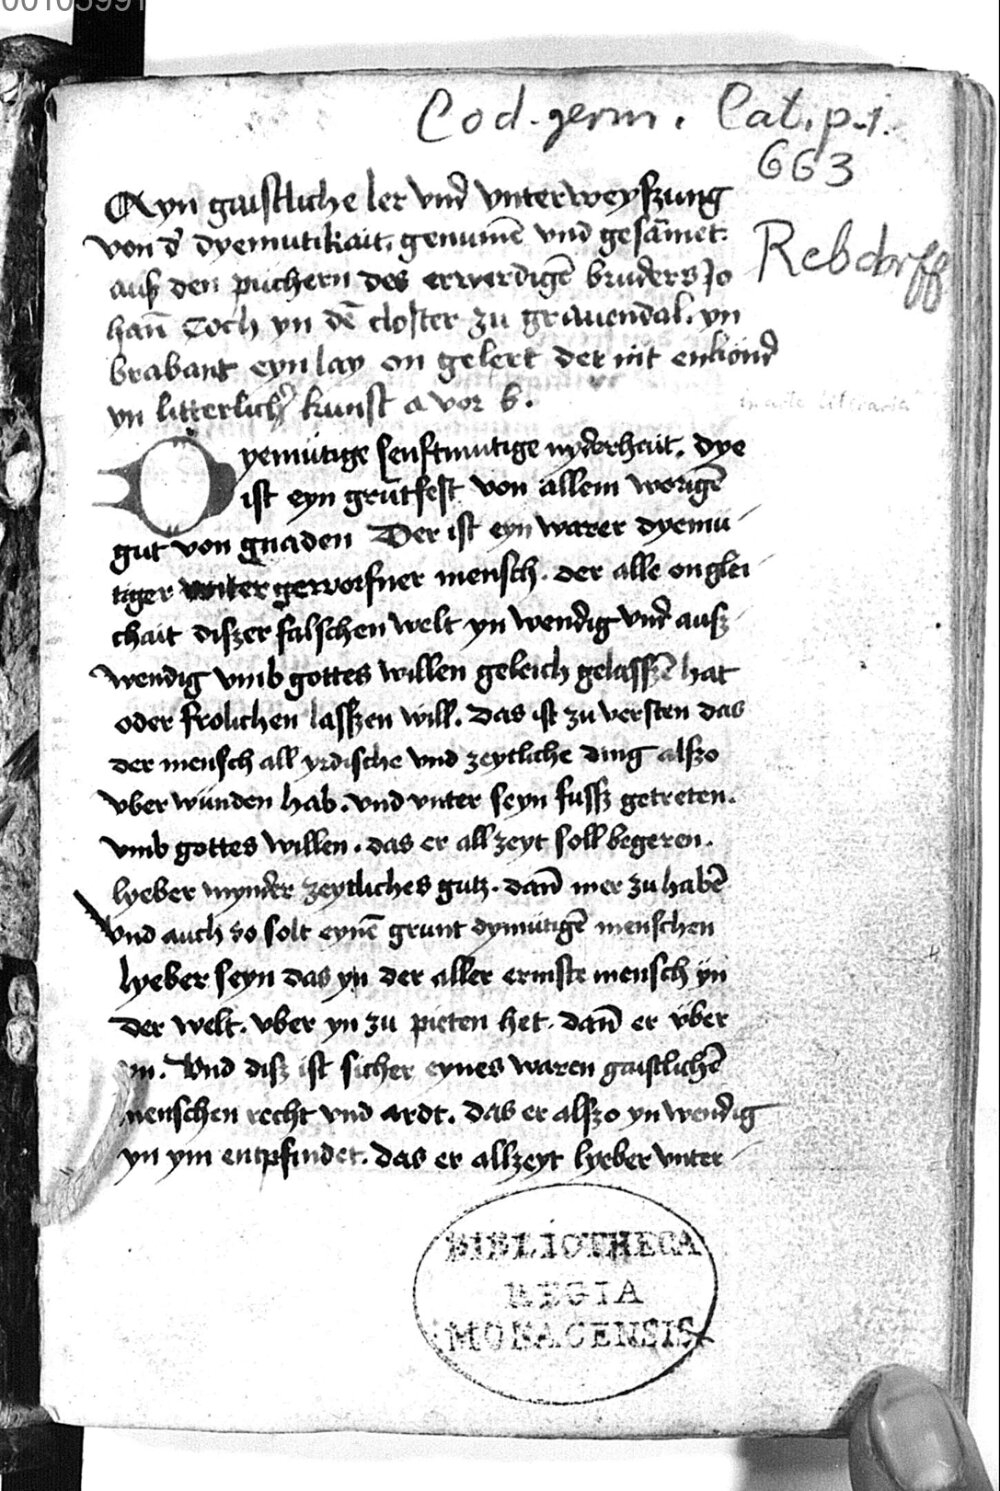 00105991
Cod. germ. Cat. p. 1.
663
Rebdorff
Ayn gaistliche ler vnd vnterweyszung
von d' dyemutikait. genumē vnd gesāmet.
ausz den puchern des erwerdigē bruders Jo
han̄ Coch yn dē closter zu grauendal. yn
brabant eyn lay on gelert der nit enkond
yn litterlich' kunst a vor b.
Dyemütige senftmutige nyderhait. dye
ist eyn grūtfest von allem worigē
gut von gnaden Der ist eyn warer dyemu
tiger vnter geworfner mensch. der alle onglei
chait diszer falschen welt yn wendig vnd ausz
wendig vmb gottes willen geleich gelasszē hat
oder frolichen lasszen will. Das ist zu versten das
der mensch all yrdische vnd zeytliche ding alszo
vber wunden hab. vnd vnter seyn fussz getreten.
vmb gottes willen. das er allzeyt soll begeren.
lyeber mynder zeytliches gutz. dan̄ mer zu habē
vnd auch so solt eynē grunt dymütigē menschen
lyeber seyn das yn der aller ermste mensch yn
der welt. vber yn zu pieten het. dan̄ er vber
yn. Vnd disz ist sicher eynes waren gaistlichē
menschen recht vnd ardt. das er alszo yn wendig
yn ym entpfindet. das er allzeyt lyeber vnter
BIBLIOTHECA
REGIA
MONACENSIS